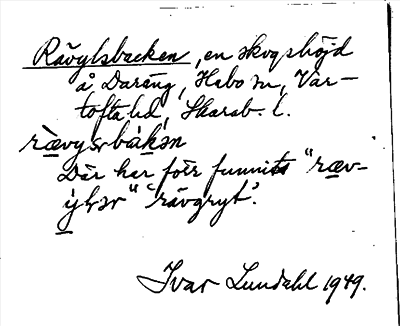 Rävylsbacken, en skogshöjd
å Daräng, Habo sn, Var-
tofta hd, Skarab. l.
rævyɽsbakən
Där har förr funnits "ræv-
yɽər" 'rävgryt'.
Ivar Lundahl 1949.